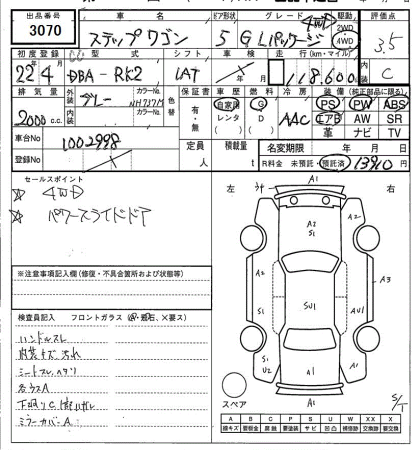 出品番号 車名 ドア形状 グレード 駆動 評価点
3070 ステップワゴン 5 G Lパッケージ 4WD 2WD 4WD 3.5
初度登録 型式 シフト 車検 走行(km・マイル) 内装
22 4 DBA-RK2 IAT 年 月 118,600 C
排気量 外装 カラーNo. 色替 保証書 車歴 燃料 冷房 装備(純正部品に限る)
2000 c.c. グレー NH737M 有・無 自家用 レンタ G D AAC PS PW ABS
内装 カラーNo. エアB AW SR
革 ナビ TV
車台No 1002998 定員 人 積載量 t 名変期限 年 月 日
登録No R料金 未預託・預託済 13910 円
セールスポイント
☆ 4WD
☆ パワースライドドア
左 右
A1
A2
S1
A2
A2
A3
S1
SU1
A1
S1
U2
A1
A1
A1
※注意事項記入欄(修復・不具合箇所および状態等)
検査員記入欄 フロントガラス
ハンドルスレ
内装キズ、汚れ
シートスレ、ヘタリ
各ウスA
ミラーカバーA
スペア
S/T
A B C P S U W X XX
線キズ 要板金 腐蝕 要塗装 サビ 凹凸 補修跡 要交換 交換済